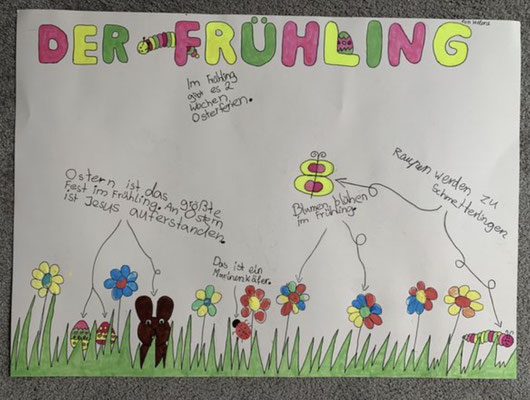 DER FRÜHLING
Im Frühling
gibt es 2
Wochen
Osterferien.
Ostern ist das größte
Fest im Frühling. An Ostern
ist Jesus auferstanden.
Blumen blühen
im Frühling.
Raupen werden zu
Schmetterlingen
Das ist ein
Marinenkäfer.